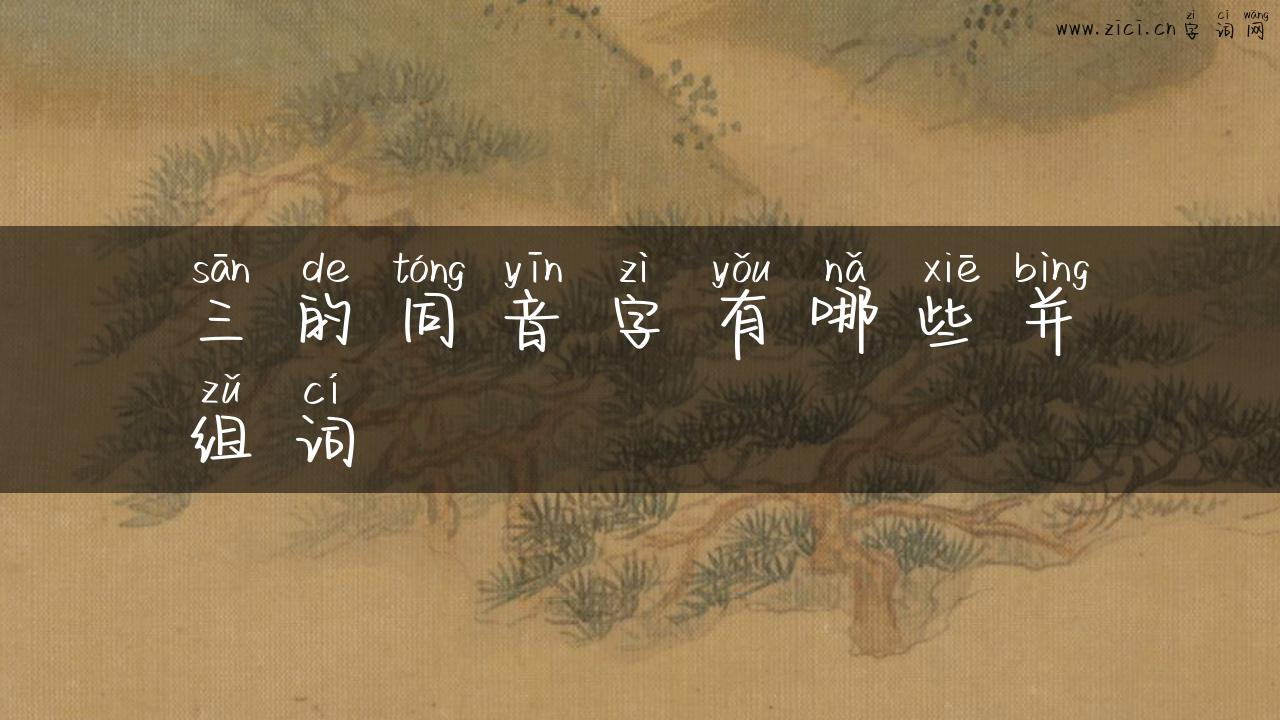 zì cí wǎng
www.zici.cn 字 词 网
sān de tóng yīn zì yǒu nǎ xiē bìng
三 的 同 音 字 有 哪 些 并
zǔ cí
组 词